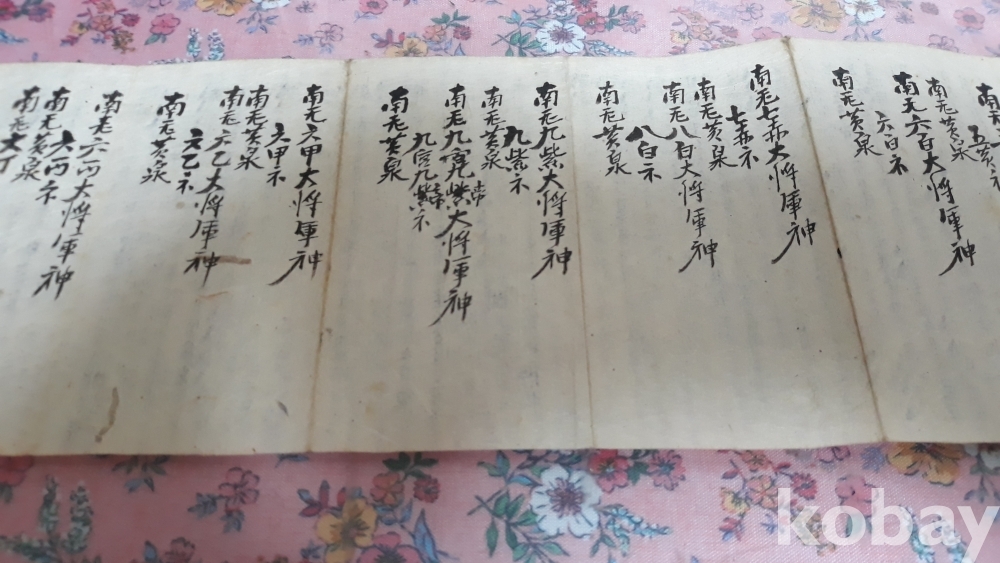 五黄ネ
南无黄泉
南无六白大将軍神
六白ネ
南无黄泉
南无七赤大将軍神
七赤ネ
南无黄泉
南无八白大将軍神
八白ネ
南无黄泉
南无九紫大将軍神
九紫ネ
南无黄泉
南无九宮九紫大将軍神
九宮九紫ネ
南无黄泉
南无六甲大将軍神
六甲ネ
南无黄泉
南无六乙大将軍神
六乙ネ
南无黄泉
南无六丙大将軍神
六丙ネ
南无黄泉
南无六丁
kobay